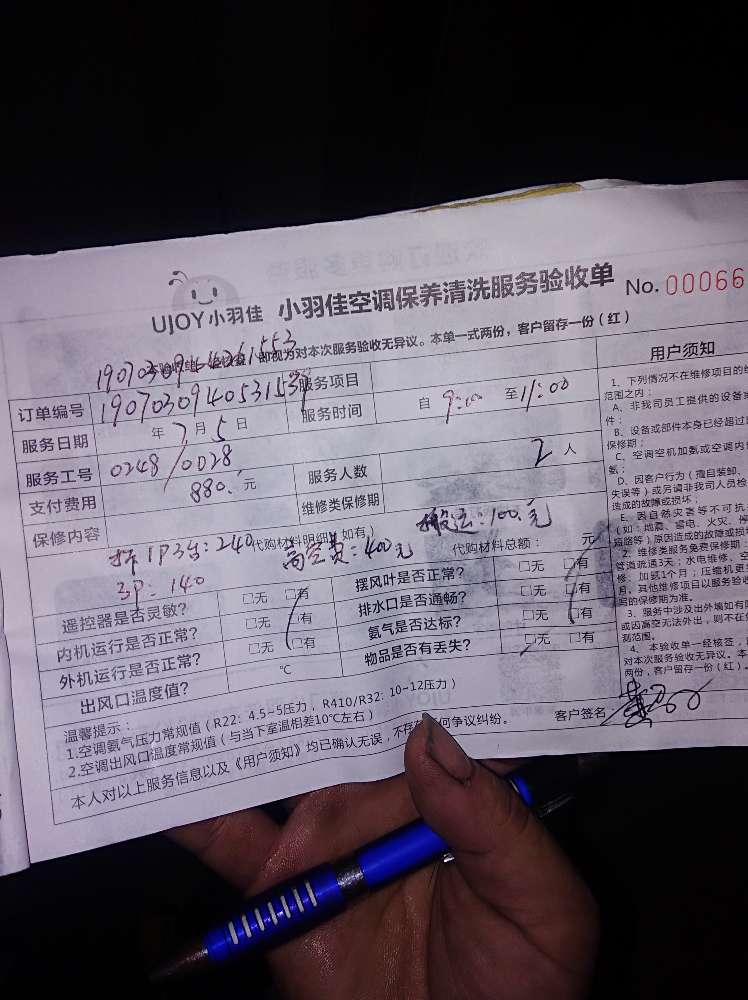 UJOY小羽佳 小羽佳空调保养清洗服务验收单 No.00066
即视为对本次服务验收无异议。本单一式两份，客户留存一份（红）
订单编号 1907030940531539 服务项目
服务日期 年 7 月 5 日 服务时间 自 9:00 至 11:00
服务工号 0248/0028 服务人数 2 人
支付费用 880. 元 维修类保修期
保修内容 代购材料明细（如有） 代购材料总额： 元
拆1P3台：240 高空费：400元 搬运：100.元
3P：140
遥控器是否灵敏？ □无 □有 摆风叶是否正常？ □无 □有
内机运行是否正常？ □无 □有 排水口是否通畅？ □无 □有
外机运行是否正常？ □无 □有 氨气是否达标？ □无 □有
出风口温度值？ ℃ 物品是否有丢失？ □无 □有
温馨提示：
1.空调氨气压力常规值（R22：4.5-5压力，R410/R32：10-12压力）
2.空调出风口温度常规值（与当下室温相差10℃左右）
本人对以上服务信息以及《用户须知》均已确认无误，不存 何争议纠纷。 客户签名：
用户须知
1、下列情况不在维修项目的
范围之内：
A、非我司员工提供的设备
件；
B、设备或部件本身已经超过
保修期；
C、空调空机加氨或空调内
氨；
D、因客户行为（擅自装卸、
失误等）或另请非我司人员检
造成的故障或损坏；
E、因自然灾害等不可抗
（如：地震、雷电、火灾、
等）原因造成的故障或损
2、维修类服务免费保修期：
管道疏通3天；水电维修、空
修、加氨1个月；压缩机更
月。其他维修项目以服务验
写的保修期为准。
3、服务中涉及出外墙如有
或因高空无法外出，则不在
测范围。
4、本验收单一经核签，
对本次服务验收无异议。本
两份，客户留存一份（红）。